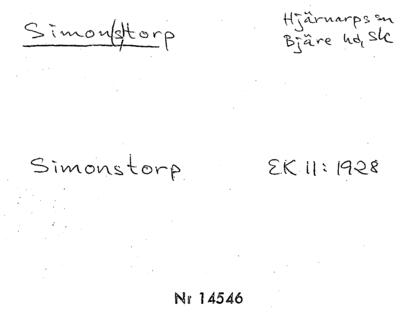 Simon(s)torp
Hjärnarps sn
Bjäre hd, Sk
Simonstorp
EK II: 1928
Nr 14546